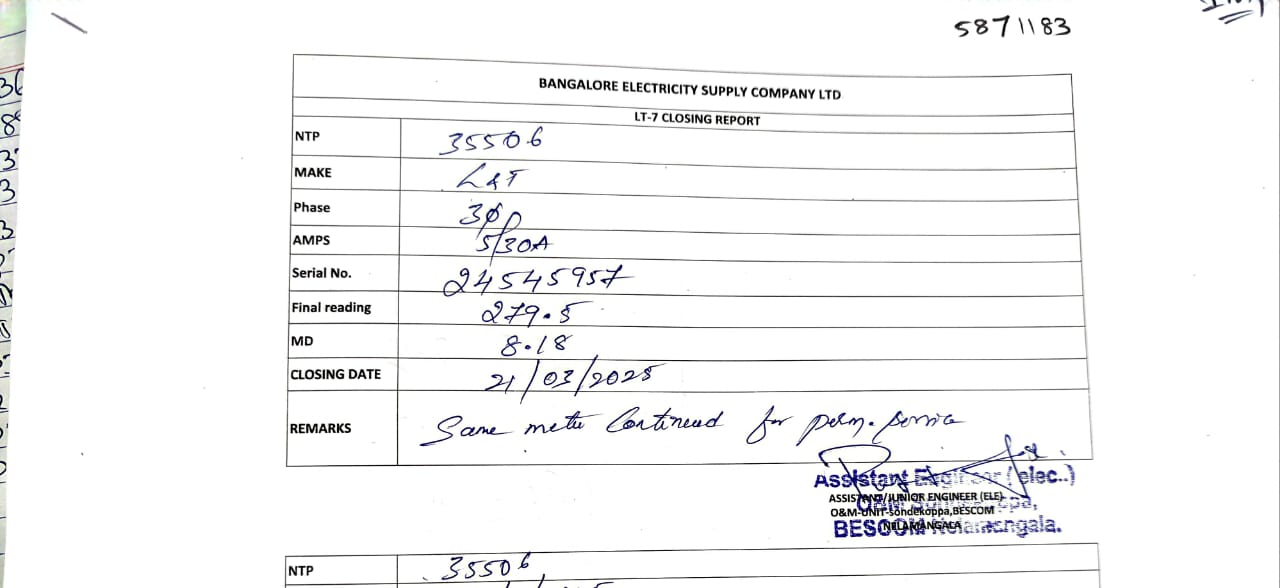 5871183
BANGALORE ELECTRICITY SUPPLY COMPANY LTD
LT-7 CLOSING REPORT
NTP 35506
MAKE L&T
Phase 3φ
AMPS 5/30A
Serial No. 24545957
Final reading 279.5
MD 8.18
CLOSING DATE 21/03/2025
REMARKS Same meter Continued for perm. service
Assistant Engineer (elec..)
ASSISTANT/JUNIOR ENGINEER (ELE)
O&M-UNIT-sondekoppa,BESCOM
NELAMANGALA
BESCOM
NTP 35506